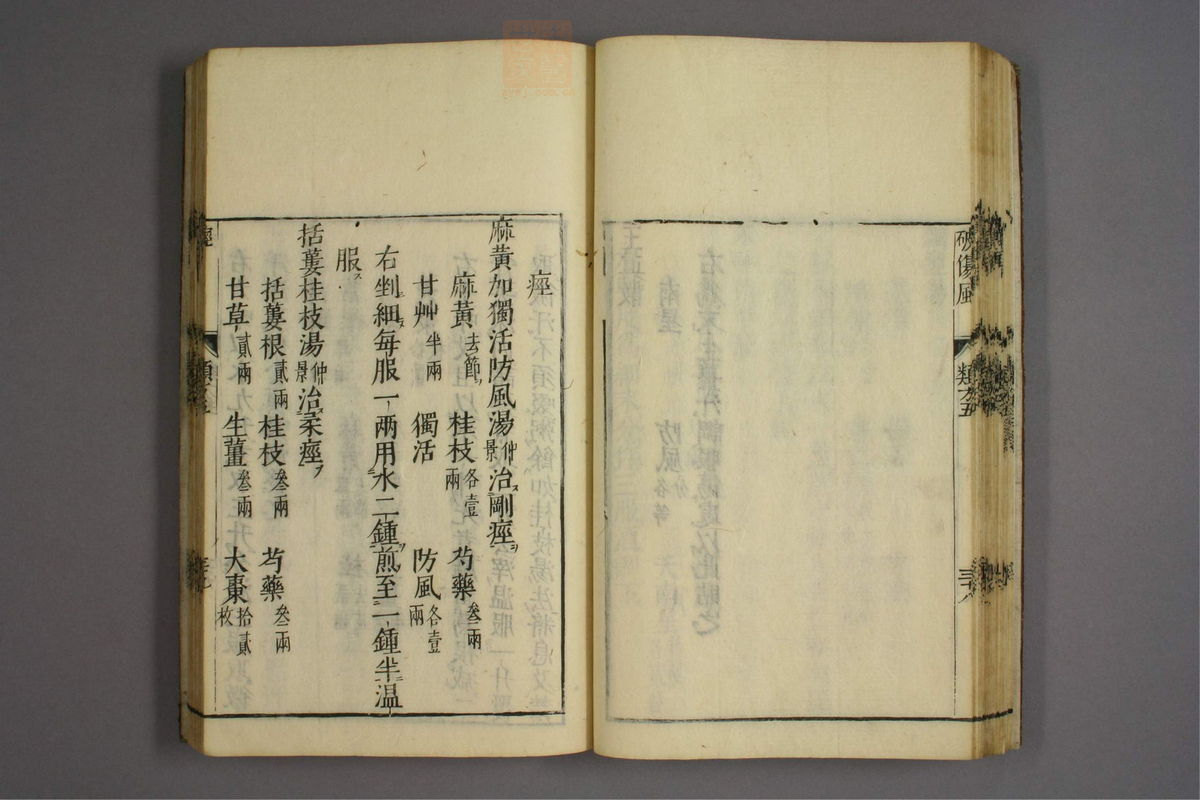 破傷風
類方五
三十八
痙
麻黄加獨活防風湯仲景治剛痙
麻黄去節 桂枝各壹兩 芍藥叁兩
甘艸半兩 獨活 防風各壹兩
右剉細毎服一両用水二鍾煎至一鍾半温
服
括蔞桂枝湯仲景治柔痙
括蔞根貳兩 桂枝叁兩 芍藥叁兩
甘草貳兩 生薑叁兩 大棗拾貳枚
痙